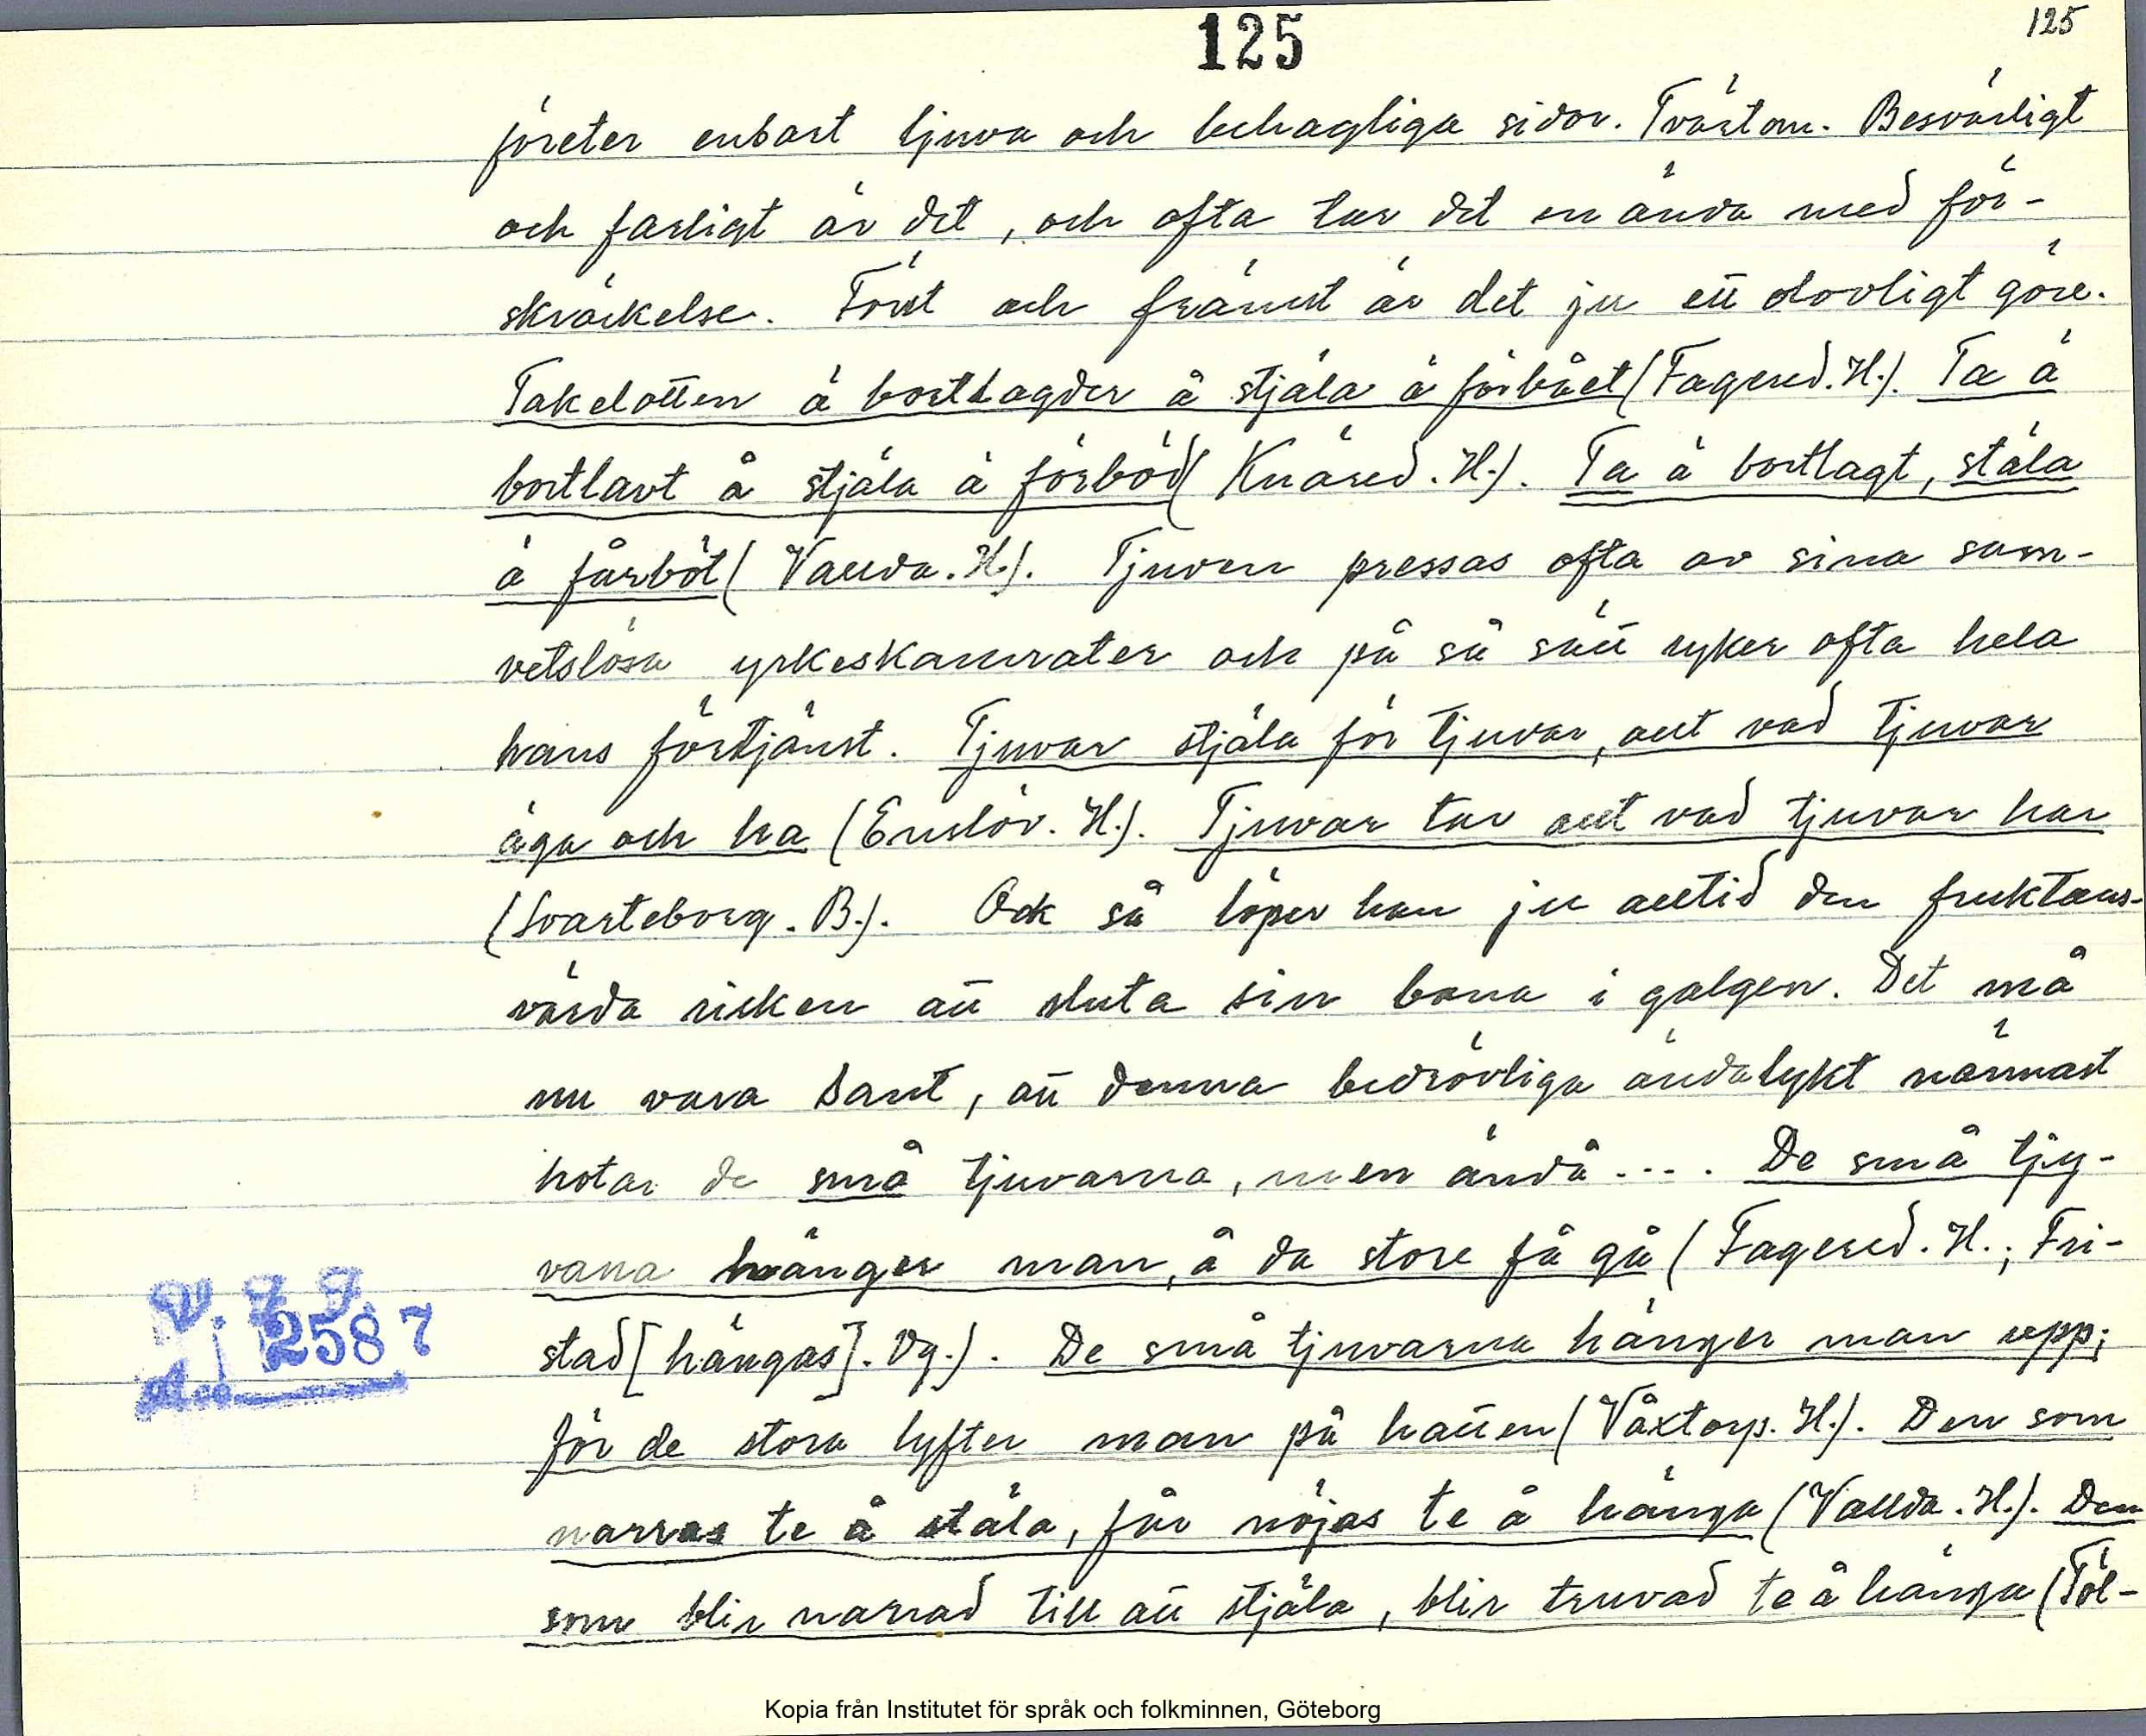 125
125
företer enbart ljuva och behagliga sidor. Tvärtom. Besvärligt
och farligt är det, och ofta tar det en ända med för-
skräckelse. Först och främst är det ju ett olovligt göre.
Takelotten ä bortlagder å stjäla ä förbået (Fagered. H.). Ta ä
bortlavt å stjäla ä förböd (Knäred. H.). Ta ä bortlagt, stäla
ä fårböt (Vallda. H.). Tjuven pressas ofta av sina sam-
vetslösa yrkeskamrater och på så sätt ryker ofta hela
hans förtjänst. Tjuvar stjäla för tjuvar, allt vad tjuvar
äga och ha (Enslöv. H.). Tjuvar tar allt vad tjuvar har
(Svarteborg. B.). Ock så löper han ju alltid den fruktans-
värda risken att sluta sin bana i galgen. Det må
nu vara sant, att denna bedrövliga ändalykt närmast
hotar de små tjuvarna, men ändå .... De små tjy-
vana hänger man, å da store få gå (Fagered. H.; Fri-
stad [hängas]. Vg.). De små tjuvarna hänger man upp;
V. F. F.
2587
för de stora lyfter man på hatten (Våxtorp. H.). Den som
narras te å stäla, får nöjas te å hänga (Vallda. H.). Den
som blir narrad till att stjäla, blir truvad te å hänga (Töl-
Kopia från Institutet för språk och folkminnen, Göteborg